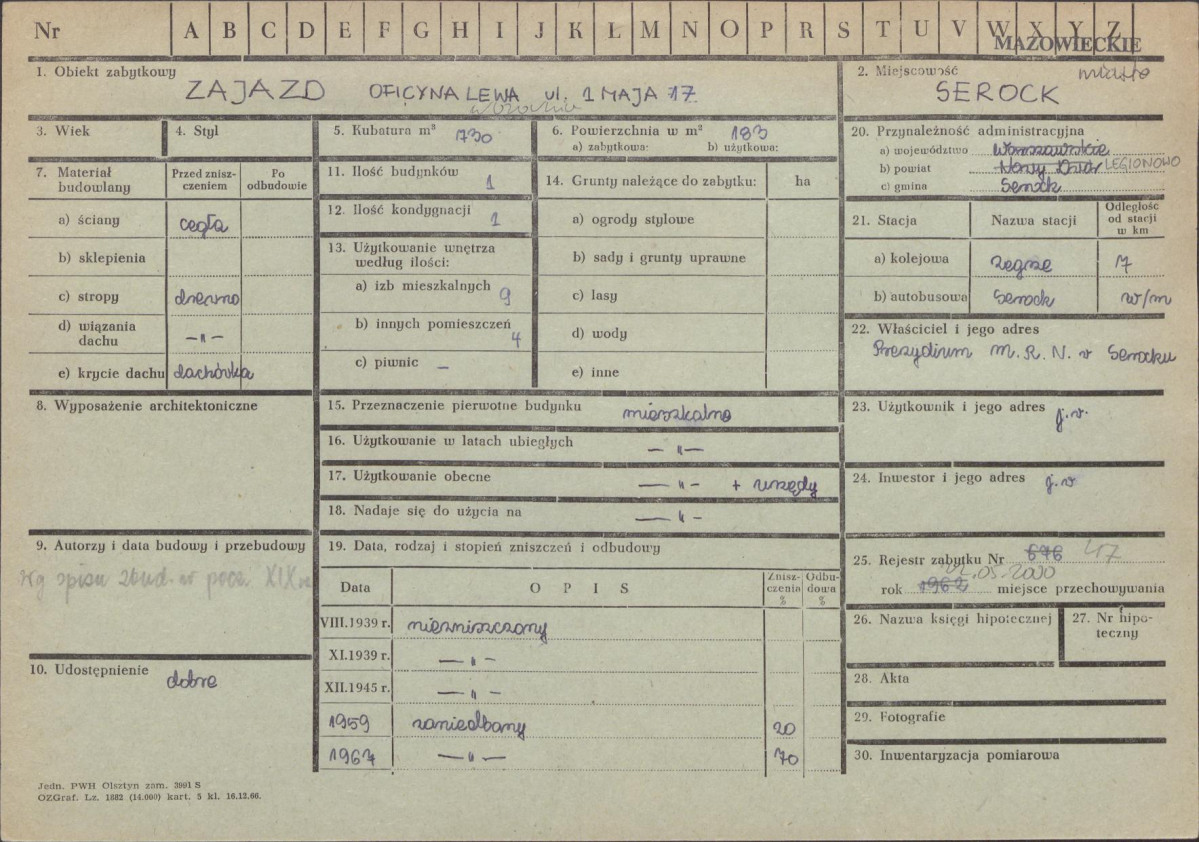 Nr A B C D E F G H I J K Ł M N O P R S T U V W X Y Z
MAZOWIECKIE
1. Obiekt zabytkowy
ZAJAZD OFICYNA LEWA ul. 1 MAJA 17
2. Miejscowość miasto
SEROCK
3. Wiek
4. Styl
5. Kubatura m³ 730
6. Powierzchnia w m² 183
a) zabytkowa: b) użytkowa:
20. Przynależność administracyjna
a) województwo Warszawskie
b) powiat Nowy Dwór LEGIONOWO
c) gmina Serock
7. Materiał budowlany
Przed zniszczeniem
Po odbudowie
a) ściany cegła
b) sklepienia
c) stropy drewno
d) wiązania dachu —"—
e) krycie dachu dachówka
11. Ilość budynków 1
12. Ilość kondygnacji 1
13. Użytkowanie wnętrza
według ilości:
a) izb mieszkalnych 9
b) innych pomieszczeń 4
c) piwnic —
14. Grunty należące do zabytku: ha
a) ogrody stylowe
b) sady i grunty uprawne
c) lasy
d) wody
e) inne
21. Stacja Nazwa stacji Odległość od stacji w km
a) kolejowa Zegrze 7
b) autobusowa Serock w/m
22. Właściciel i jego adres
Prezydium M.R.N. w Serocku
8. Wyposażenie architektoniczne
15. Przeznaczenie pierwotne budynku mieszkalne
16. Użytkowanie w latach ubiegłych —"—
17. Użytkowanie obecne —"— + urzędy
18. Nadaje się do użycia na —"—
23. Użytkownik i jego adres j.w.
24. Inwestor i jego adres j.w
9. Autorzy i data budowy i przebudowy
Wg spisu zbud. w pocz. XIX w
10. Udostępnienie dobre
19. Data, rodzaj i stopień zniszczeń i odbudowy
Data OPIS Zniszczenia % Odbudowa %
VIII.1939 r. niezniszczony
XI.1939 r. —"—
XII.1945 r. —"—
1959 zaniedbany 20
1967 —"— 70
25. Rejestr zabytku Nr 676 417
.05.2000
rok 1962 miejsce przechowywania
26. Nazwa księgi hipotecznej
27. Nr hipoteczny
28. Akta
29. Fotografie
30. Inwentaryzacja pomiarowa
Jedn. PWH Olsztyn zam. 3991 S
OZGraf. Lz. 1882 (14.000) kart. 5 kl. 16.12.66.